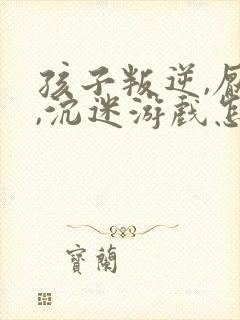 孩子叛逆,厌
,沉迷游戏怎
寶蘭